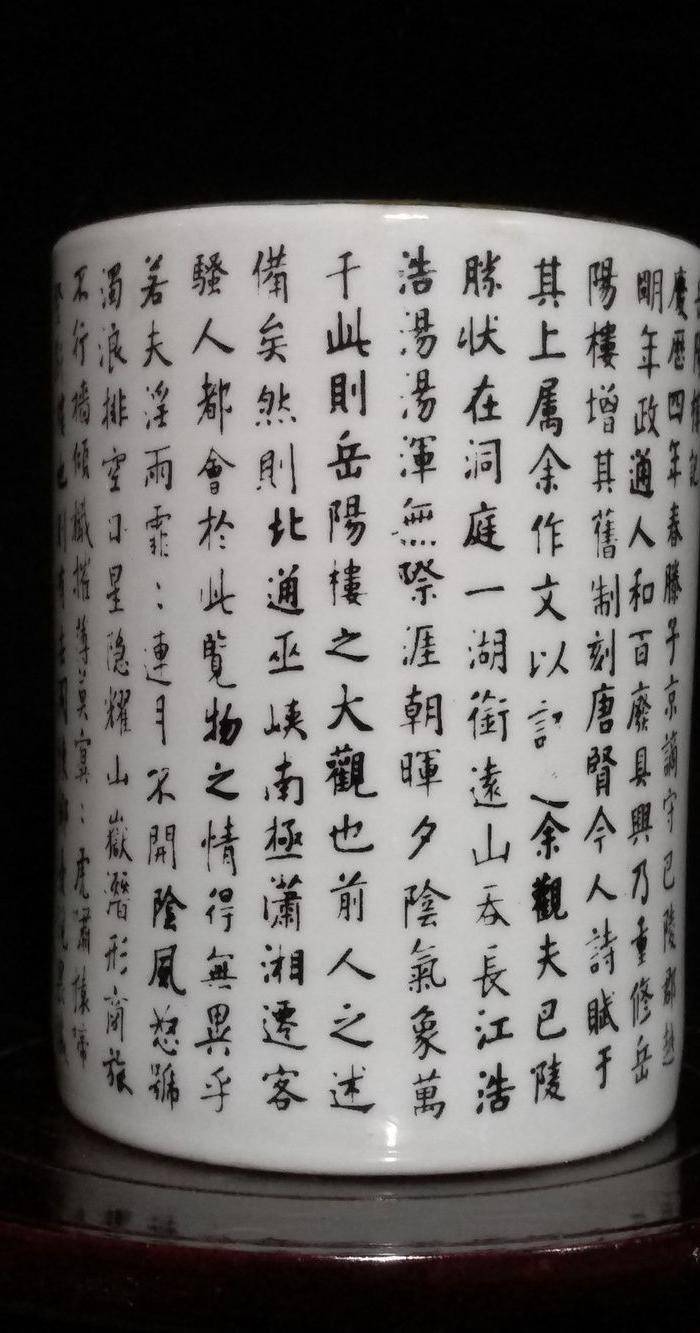 岳陽樓記
慶歷四年春滕子京謫守巴陵郡越
明年政通人和百廢具興乃重修岳
陽樓增其舊制刻唐賢今人詩賦于
其上属余作文以記之余觀夫巴陵
勝状在洞庭一湖銜遠山吞長江浩
浩湯湯渾無際涯朝暉夕陰氣象萬
千此則岳陽樓之大觀也前人之述
備矣然則北通巫峡南極瀟湘遷客
騷人都會於此覽物之情得無異乎
若夫淫雨霏：連月不開陰風怒號
濁浪排空日星隐耀山嶽潛形商旅
不行檣傾檝摧薄莫冥：虎嘯猿啼